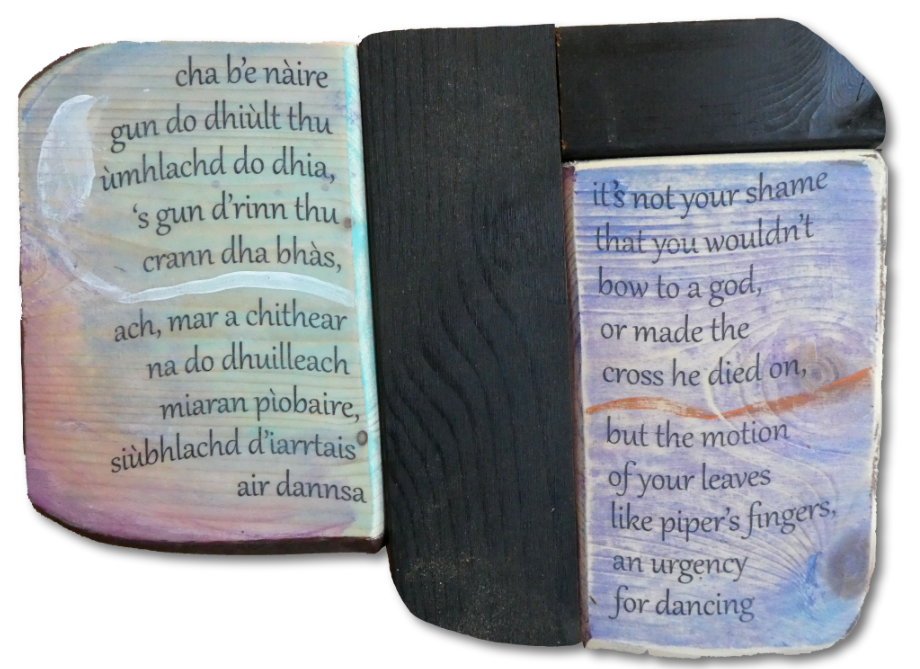 cha b'e nàire
gun do dhiùlt thu
ùmhlachd do dhia,
's gun d'rinn thu
crann dha bhàs,
ach, mar a chithear
na do dhuilleach
miaran pìobaire,
siùbhlachd d'iarrtais
air dannsa
it's not your shame
that you wouldn't
bow to a god,
or made the
cross he died on,
but the motion
of your leaves
like piper's fingers,
an urgency
for dancing